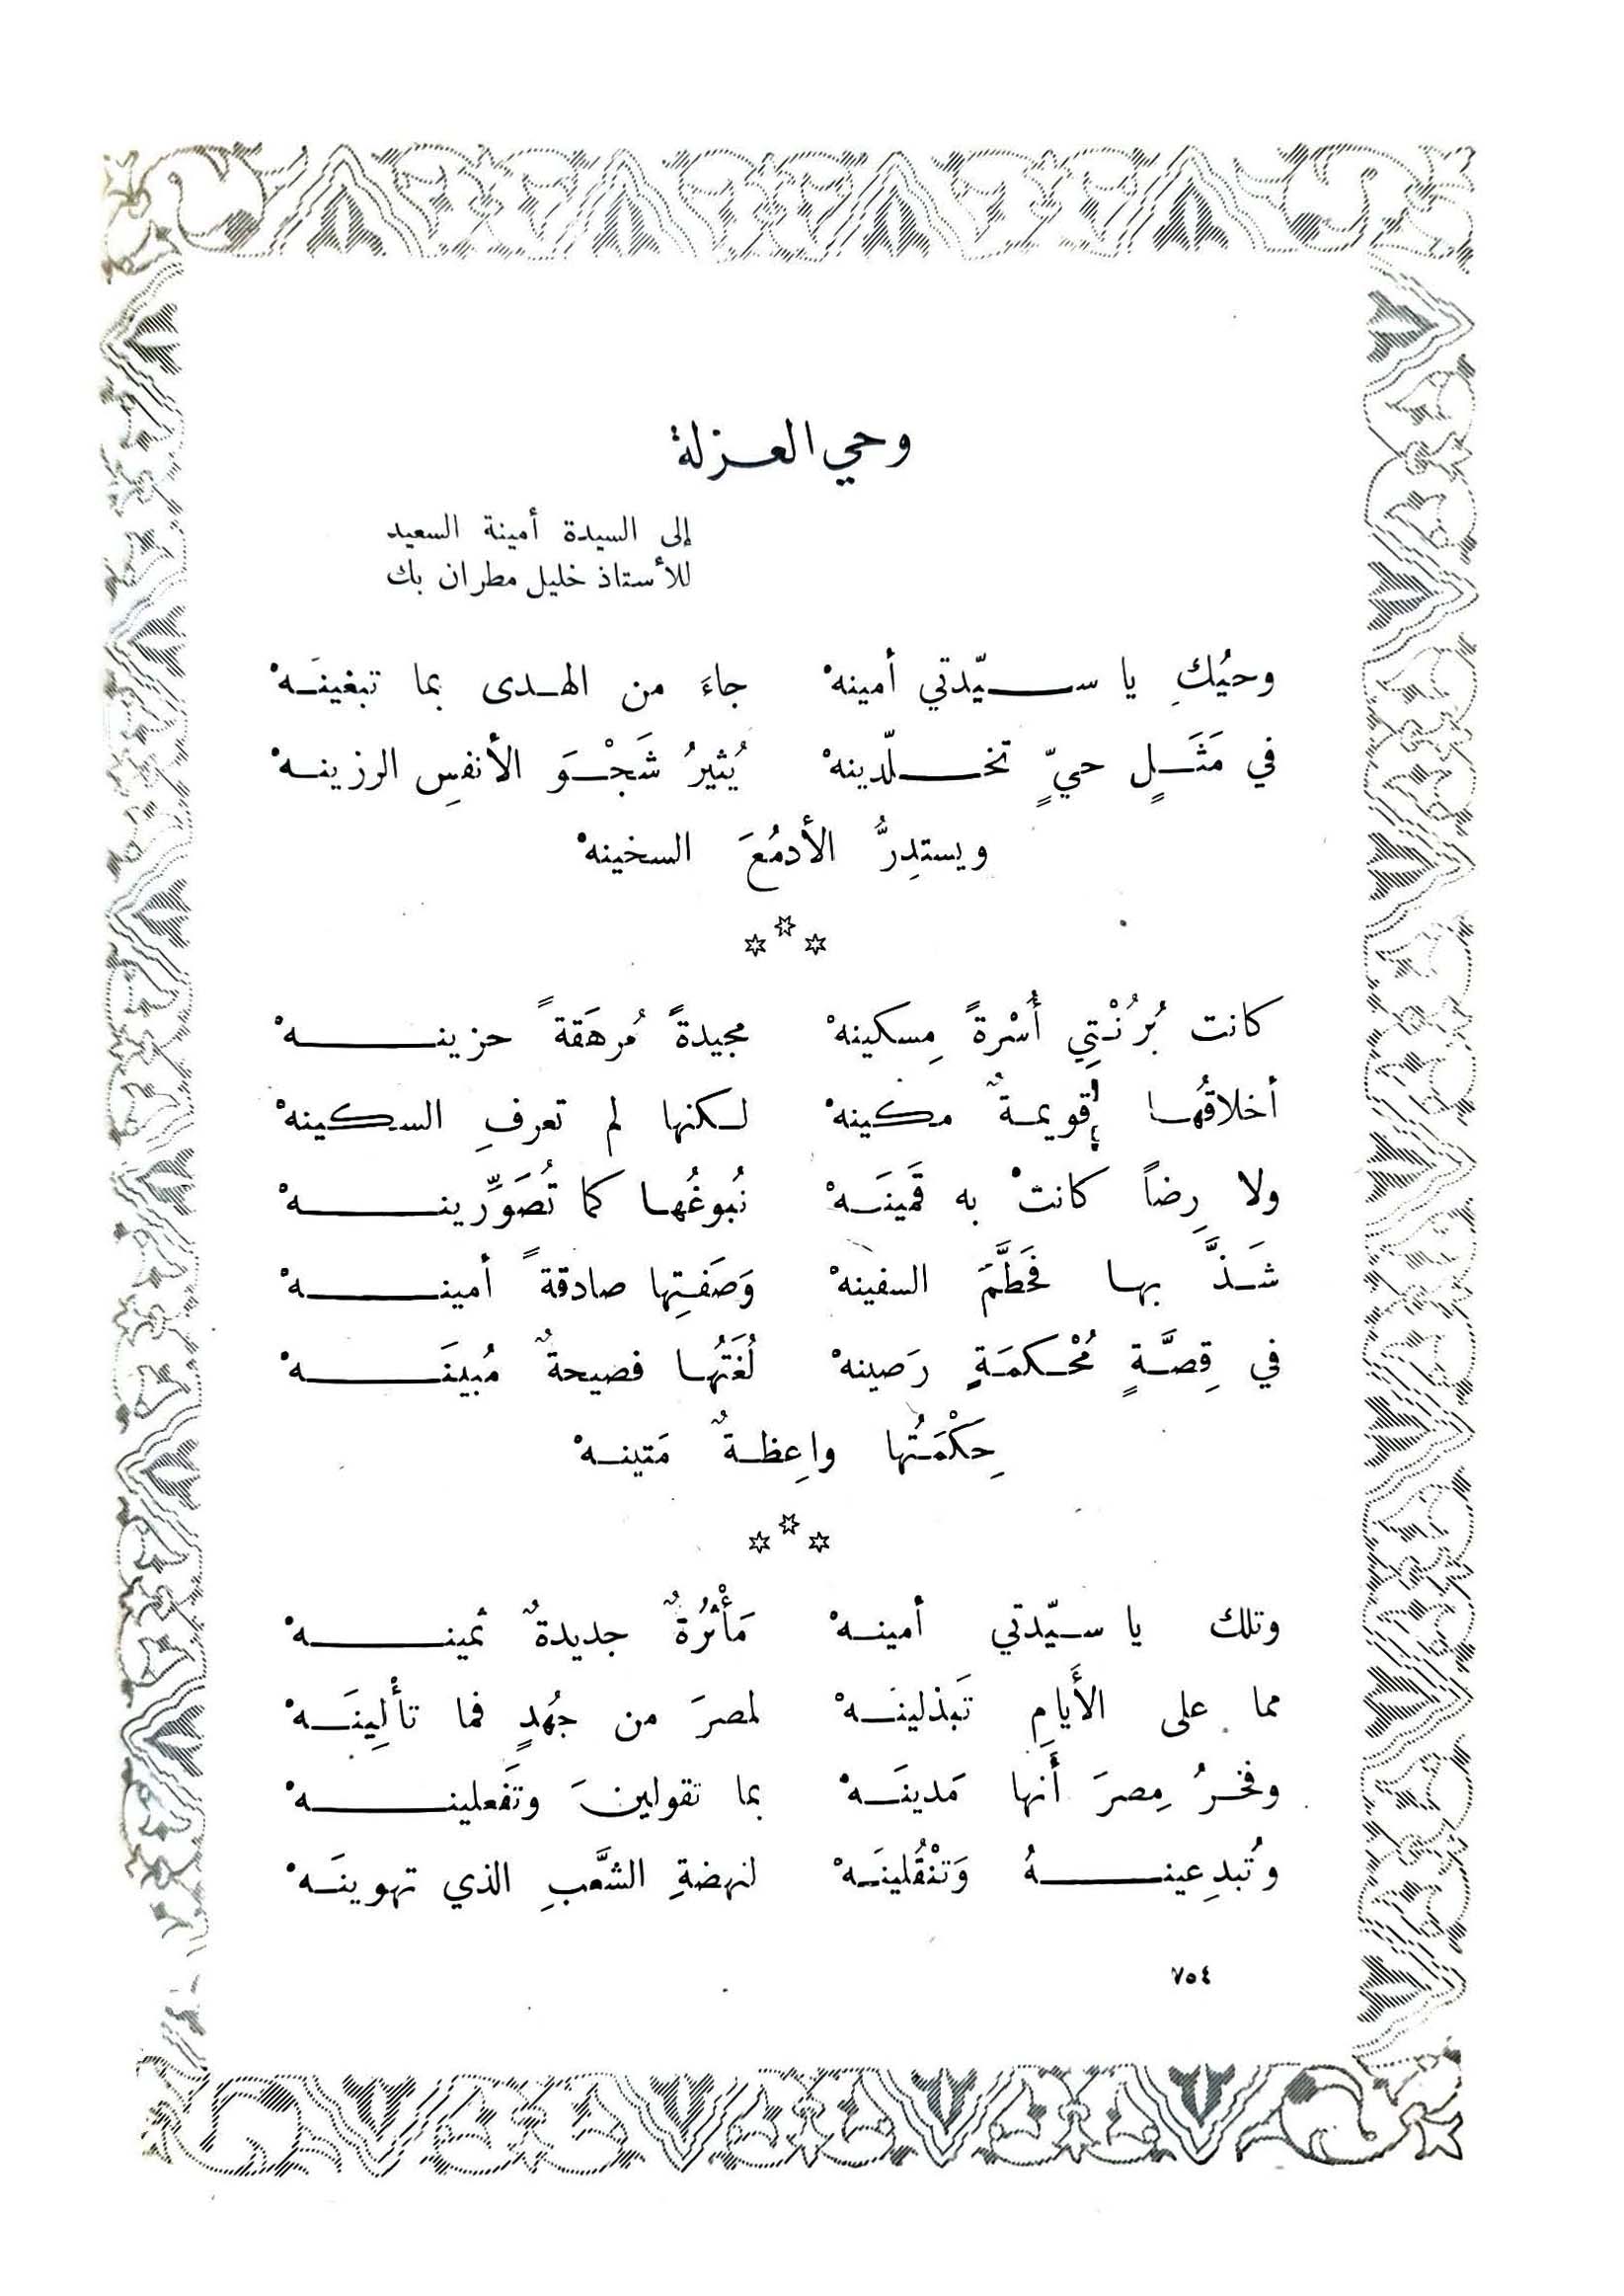 وحي العزلة
إلى السيدة أمينة السعيد
للأستاذ خليل مطران بك
وحيُكِ يا سيّدتي أمينهْ جاءَ من الهدى بما تبغينَهْ
في مَثَلٍ حيٍّ تخلّدينهْ يُثيرُ شَجْوَ الأنفسِ الرزينهْ
ويستدِرُّ الأدمُعَ السخينهْ
كانت بُرُنْتِي أُسْرةً مِسكينهْ مجيدةً مُرهَقةً حزينهْ
أخلاقُها قويمةٌ مكينهْ لكنها لم تعرفِ السكينهْ
ولا رِضاً كانتْ به قَمينَهْ نُبوغُها كما تُصَوِّرينهْ
شَذَّ بها فَحَطَّمَ السفينهْ وَصَفتِها صادقةً أمينهْ
في قِصَّةٍ مُحْكمَةٍ رَصينهْ لُغَتُها فصيحةٌ مُبينَهْ
حِكْمَتُها واعِظةٌ مَتينهْ
وتلك يا سيّدتي أمينهْ مَأْثُرةٌ جديدةٌ ثمينهْ
مما على الأَيامِ تَبذلينَهْ لمصرَ من جُهدٍ فما تأْلِينَهْ
وفخرُ مِصرَ أَنها مَدينَهْ بما تقولينَ وتَفعلينهْ
وتُبدِعينهُ وَتنْقُلينَهْ لنهضةِ الشَّعبِ الذي تهوينَهْ
٧٥٤